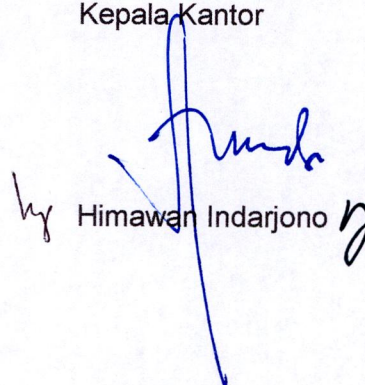 Kepala Kantor
Himawan Indarjono